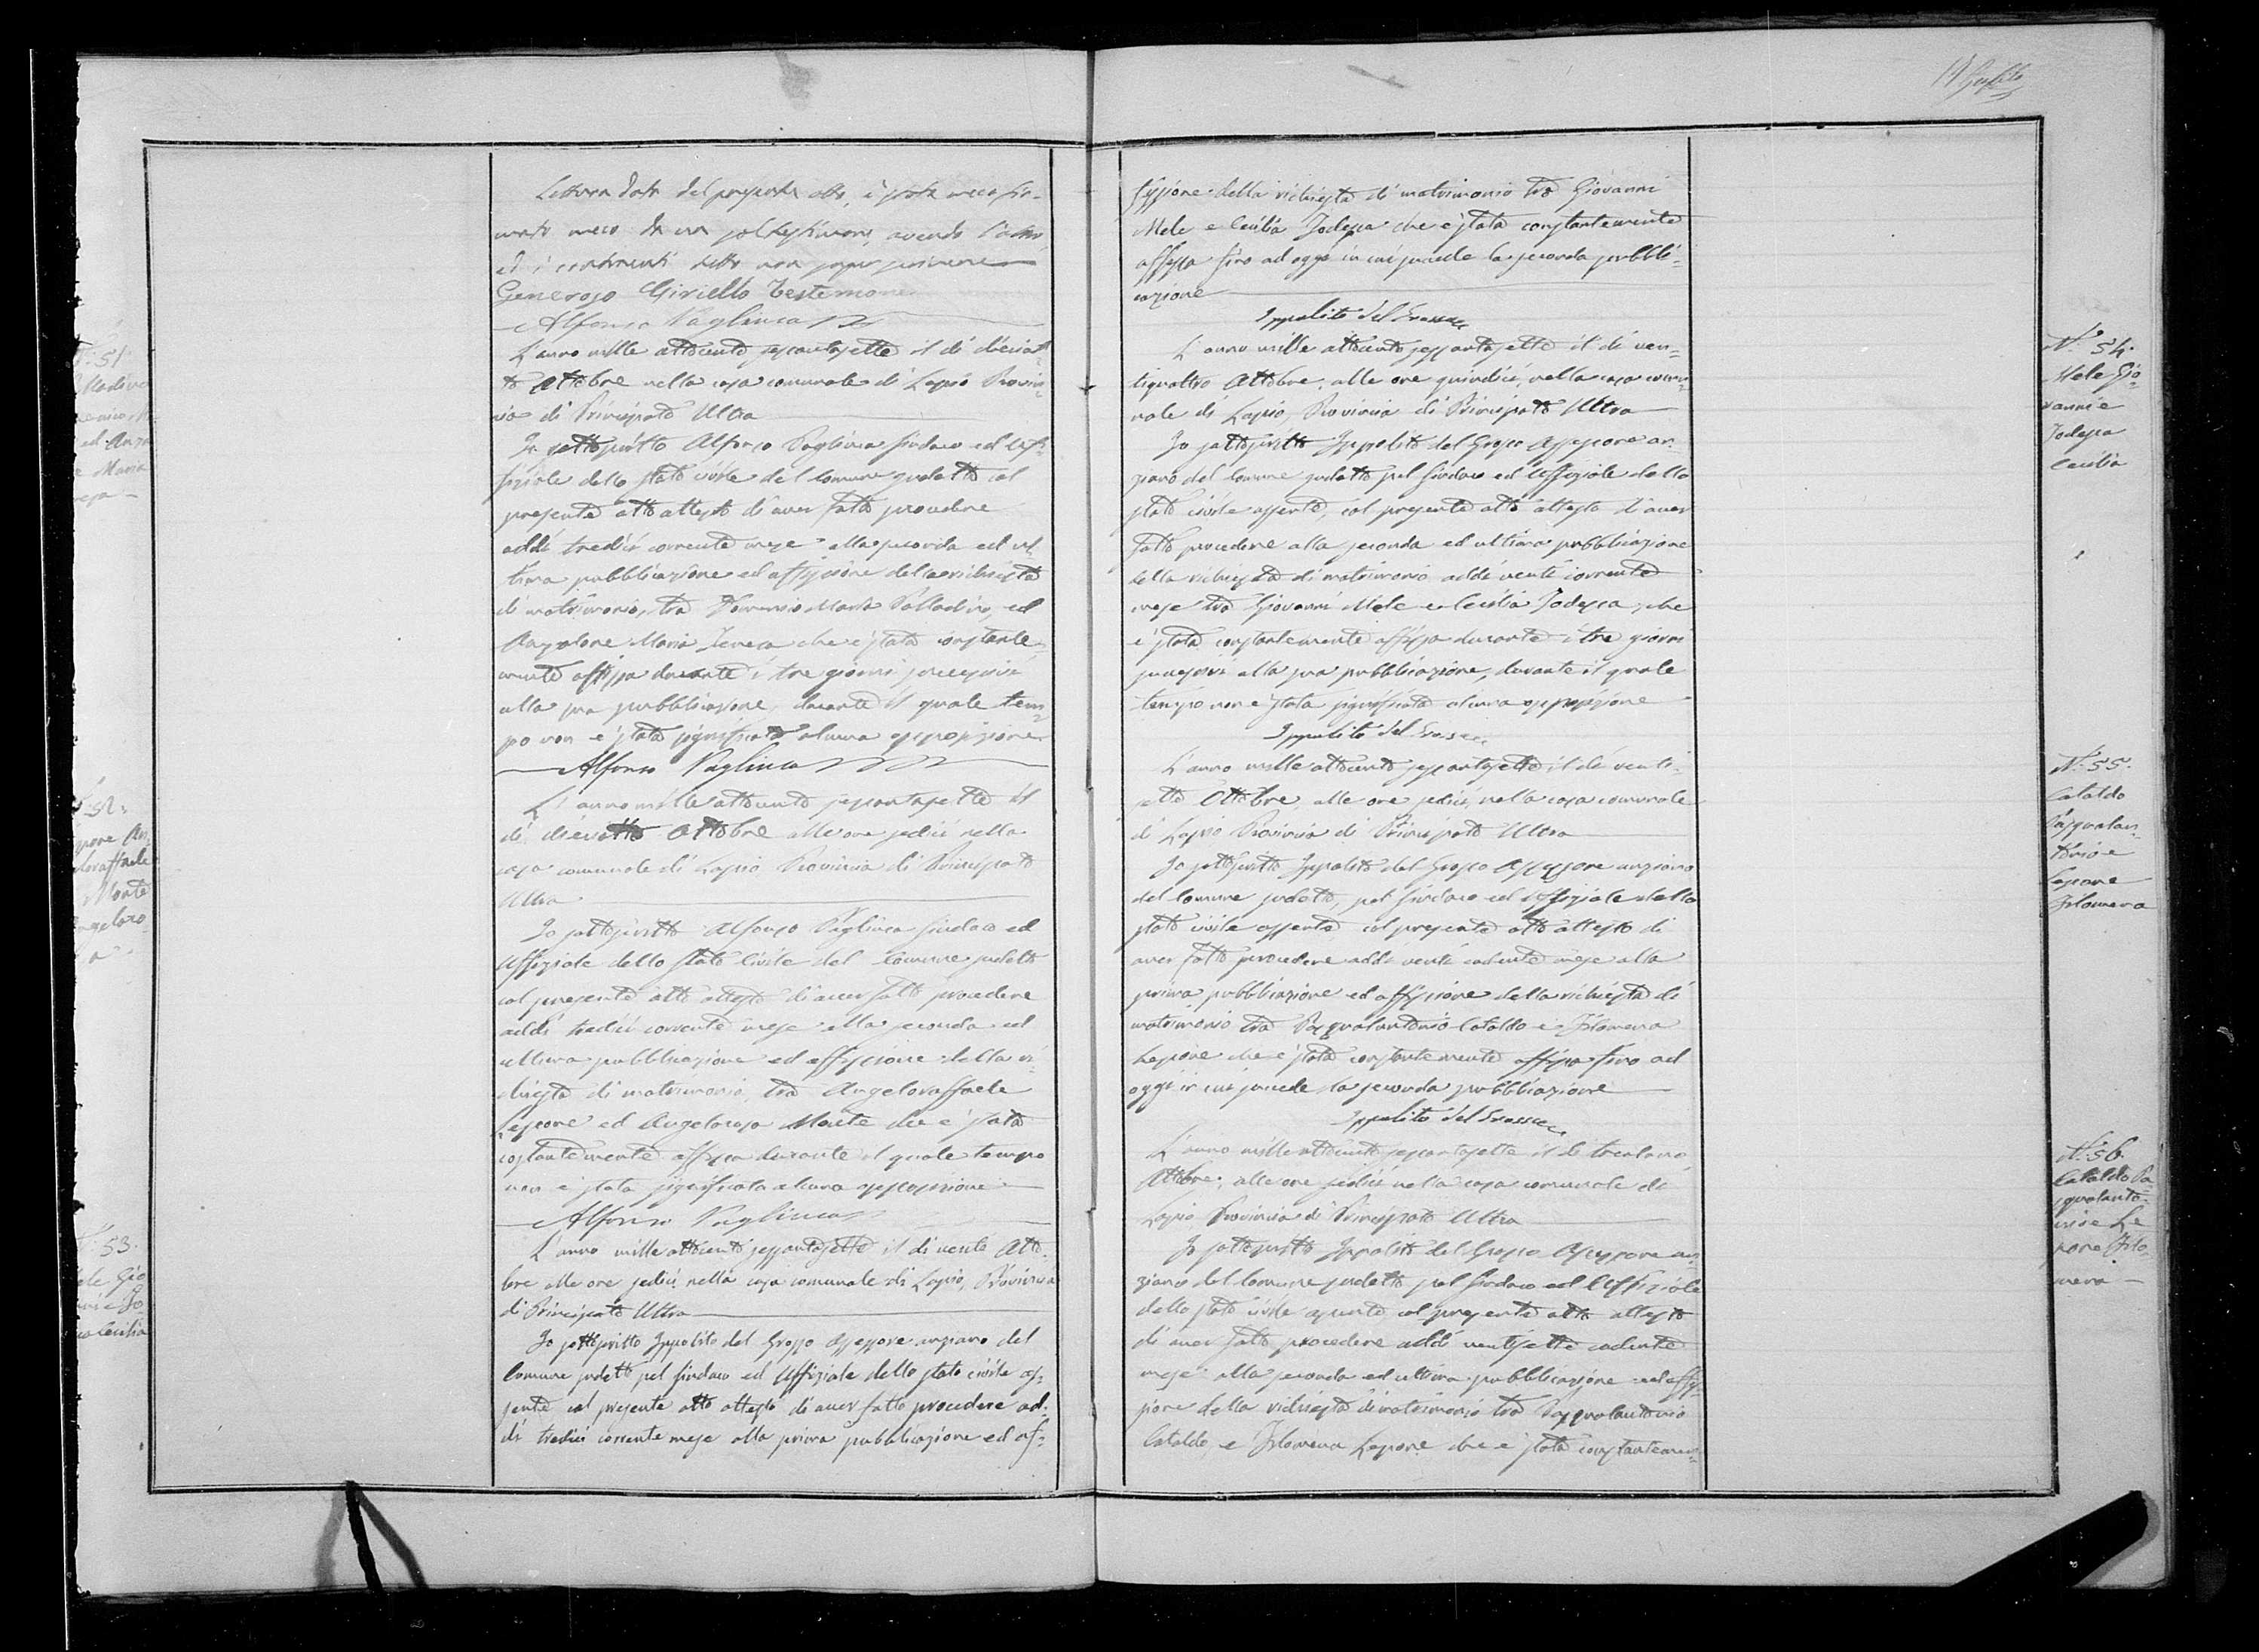 Lettura data del presente atto, è stato meco fir-
mato meco da un sol testimone, avendo l'altro,
ed i contraenti detto non saper scrivere
Generoso Ciriello Testimone
Alfonso Vaglinca
N. 51
Palladino
ed Anza
e Maria
resa
L'anno mille ottocento sessantasette il dì diciot-
to Ottobre nella casa comunale di Lapio Provin-
cia di Principato Ultra
Io sottoscritto Alfonso Vaglinca Sindaco ed Uf-
fiziale dello stato civile del Comune sudetto col
presente atto attesto di aver fatto procedere
addì tredici corrente mese alla seconda ed ul-
tima pubblicazione ed affissione della richiesta
di matrimonio, tra Domenico Maria Palladino, ed
Anzalone Maria Teresa che è stata constante-
mente affissa durante i tre giorni successivi
alla sua pubblicazione, durante il quale tem-
po non è stata significata alcuna opposizione
Alfonso Vaglinca
N. 52.
epone An-
geloraffaele
Monte
Angeloro-
sa
L'anno mille ottocento sessantasette il
dì diciotto Ottobre alle ore sedici nella
casa comunale di Lapio Provincia di Principato
Ultra
Io sottoscritto Alfonso Vaglinca Sindaco ed
Uffiziale dello stato Civile del Comune sudetto
col presente atto attesto di aver fatto procedere
addì tredici corrente mese alla seconda ed
ultima pubblicazione ed affissione della ri-
chiesta di matrimonio, tra Angeloraffaele
Lepore ed Angelorosa Monte che è stata
costantemente affissa durante il quale tempo
non è stata significata alcuna opposizione
Alfonso Vaglinca
N. 53.
ele Gio
nni e Jo
Cecilia
L'anno mille ottocento sessantasette il dì venti Otto-
bre alle ore sedici nella casa comunale di Lapio, Provincia
di Principato Ultra
Io sottoscritto Ippolito del Grosso Assessore anziano del
Comune sudetto pel Sindaco ed Uffiziale dello stato civile as-
sente col presente atto attesto di aver fatto procedere ad-
dì tredici corrente mese alla prima pubblicazione ed af-
fissione della richiesta di matrimonio tra Giovanni
Mele e Cecilia Jodessa che è stata constantemente
affissa fino ad oggi in cui succede la seconda pubbli-
cazione
Ippolito del Grosso
N. 54.
Mele Gio-
vanni e
Jodessa
Cecilia
L'anno mille ottocento sessantasette il dì ven-
tiquattro Ottobre, alle ore quindici, nella casa comu-
nale di Lapio, Provincia di Principato Ultra
Io sottoscritto Ippolito del Grosso Assessore an-
ziano del Comune sudetto pel Sindaco ed Uffiziale dello
stato Civile assente, col presente atto attesto di aver
fatto procedere alla seconda ed ultima pubblicazione
della richiesta di matrimonio addì venti corrente
mese tra Giovanni Mele e Cecilia Jodessa, che
è stata constantemente affissa durante i tre giorni
successivi alla sua pubblicazione, durante il quale
tempo non è stata significata alcuna opposizione
Ippolito del Grosso
N. 55.
Cataldo
Pasqualan-
tonio e
Lepore
Filomena
L'anno mille ottocento sessantasette il dì venti-
sette Ottobre alle ore sedici, nella casa comunale
di Lapio Provincia di Principato Ultra
Io sottoscritto Ippolito del Grosso Assessore anziano
del Comune sudetto, pel Sindaco ed Uffiziale dello
stato civile assente col presente atto attesto di
aver fatto procedere addì venti cadente mese alla
prima pubblicazione ed affissione della richiesta di
matrimonio tra Pasqualantonio Cataldo e Filomena
Lepore che è stata constantemente affissa fino ad
oggi in cui succede la seconda pubblicazione
Ippolito del Grosso
N. 56.
Cataldo Pa-
squalanto-
nio e Le-
pore Filo-
mena
L'anno mille ottocento sessantasette il dì trentuno
Ottobre, alle ore sedici nella casa comunale di
Lapio Provincia di Principato Ultra
Io sottoscritto Ippolito del Grosso Assessore an-
ziano del Comune sudetto pel Sindaco ed Uffiziale
dello stato civile assente col presente atto attesto
di aver fatto procedere addì ventisette cadente
mese alla seconda ed ultima pubblicazione ed affis-
sione della richiesta di matrimonio tra Pasqualantonio
Cataldo, e Filomena Lepore che è stata constantemen-